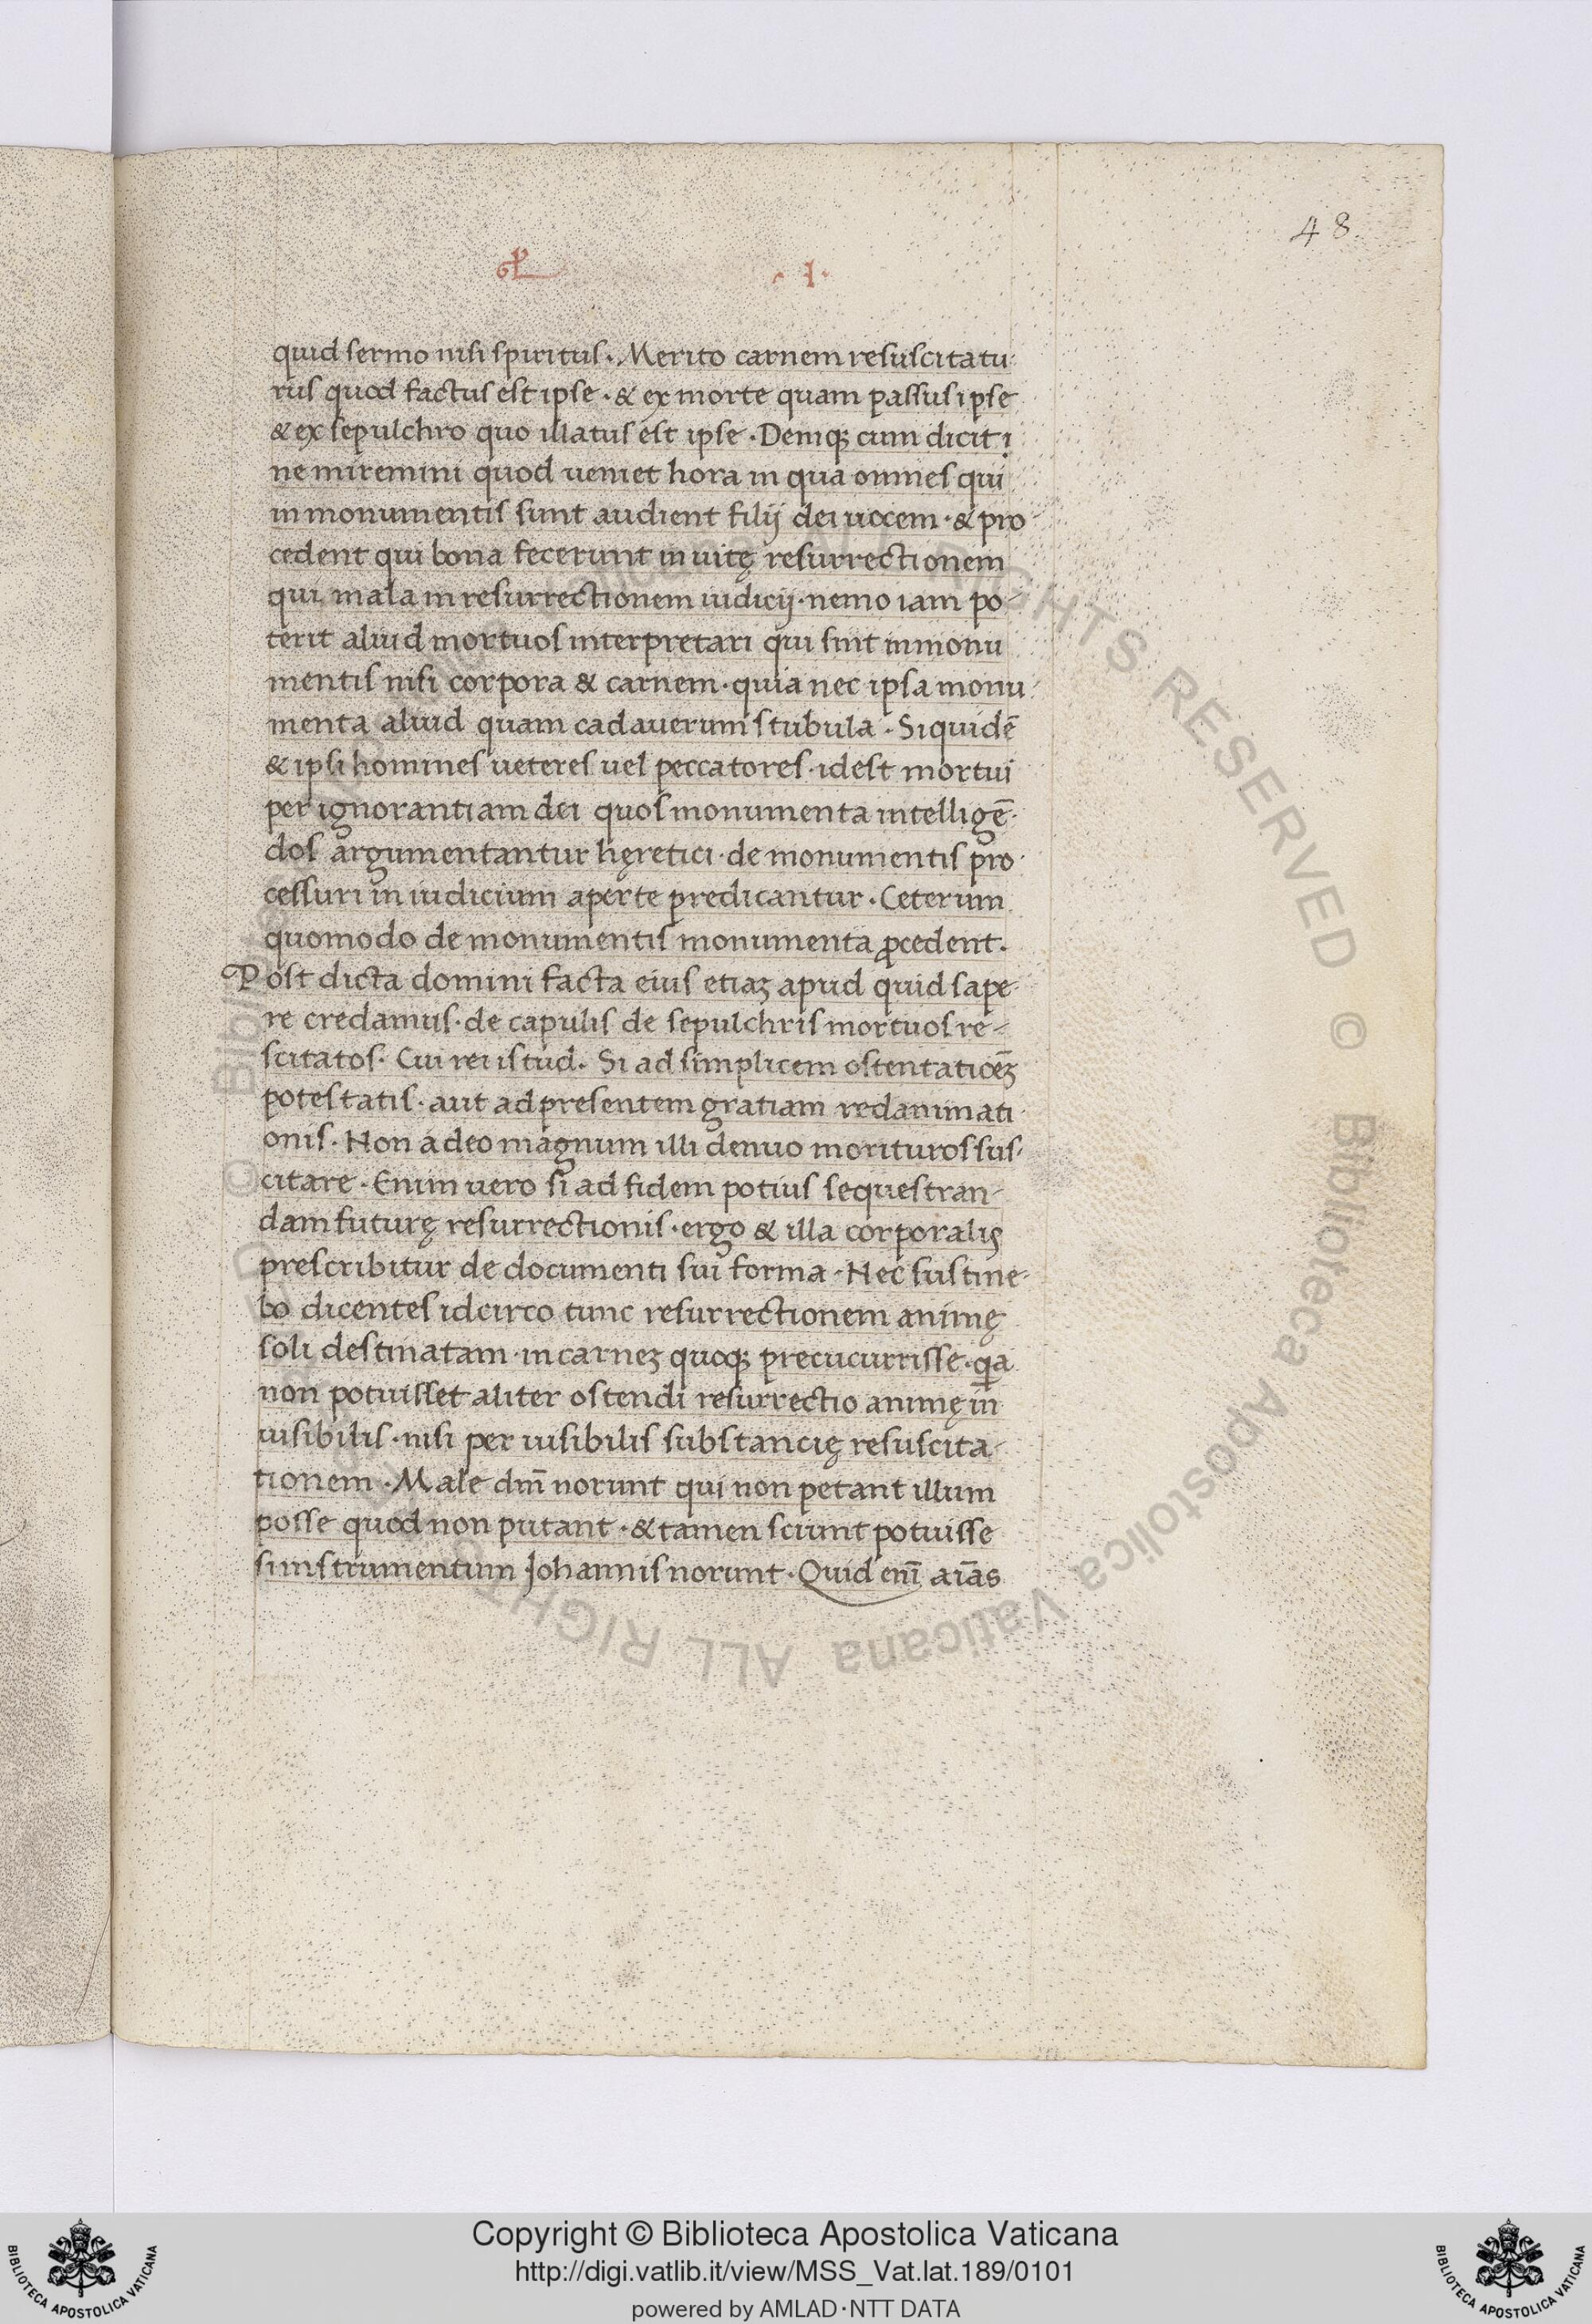 48.
· 1 ·
quid sermo nisi spiritus. Merito carnem resuscitatu-
rus quod factus est ipse · & ex morte quam passus ipse
& ex sepulchro quo illatus est ipse · Deniqꝫ cum dicit ?
ne miremini quod veniet hora in qua omnes qui
in monumentis sunt audient filij dei vocem · & pro-
cedent qui bona fecerunt in vitę resurrectionem
qui mala in resurrectionem iudicij · nemo iam po-
terit aliud mortuos interpretari qui sint in monu
mentis nisi corpora & carnem · quia nec ipsa monu-
menta aliud quam cadaverum stubula · Siquidē
& ipsi homines veteres vel peccatores · idest mortui
per ignorantiam dei quos monumenta intelligē-
dos argumentantur hęretici · de monumentis pro-
cessuri in iudicium aperte predicantur · Ceterum
quomodo de monumentis monumenta ꝓcedent.
Post dicta domini facta eius etiaꝫ apud quid sape-
re credamus · de capulis de sepulchris mortuos re-
scitatos · Cui rei istud. Si ad simplicem ostentationēꝫ
potestatis · aut ad presentem gratiam redanimati-
onis · Non adeo magnum illi denuo morituros sus-
citare · Enim vero si ad fidem potius sequestran-
dam futurę resurrectionis · ergo & illa corporalis
prescribitur de documenti sui forma · Nec sustine-
bo dicentes idcirco tunc resurrectionem animę
soli destinatam · in carneꝫ quoqꝫ precucurrisse · qa
non potuisset aliter ostendi resurrectio animę in
visibilis · nisi per visibilis substancię resuscita-
tionem · Male dnī norunt qui non petant illum
posse quod non putant · & tamen sciunt potuisse
si instrumentum Johannis norunt · Quid enī aīas
© Biblioteca Apostolica Vaticana ALL RIGHTS RESERVED
Copyright © Biblioteca Apostolica Vaticana
http://digi.vatlib.it/view/MSS_Vat.lat.189/0101
powered by AMLAD·NTT DATA
BIBLIOTECA APOSTOLICA VATICANA
BIBLIOTECA APOSTOLICA VATICANA